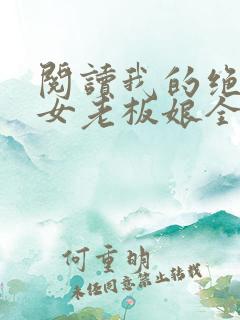 閱讀我的绝
女老板娘全
何重明
未经同意禁止转载